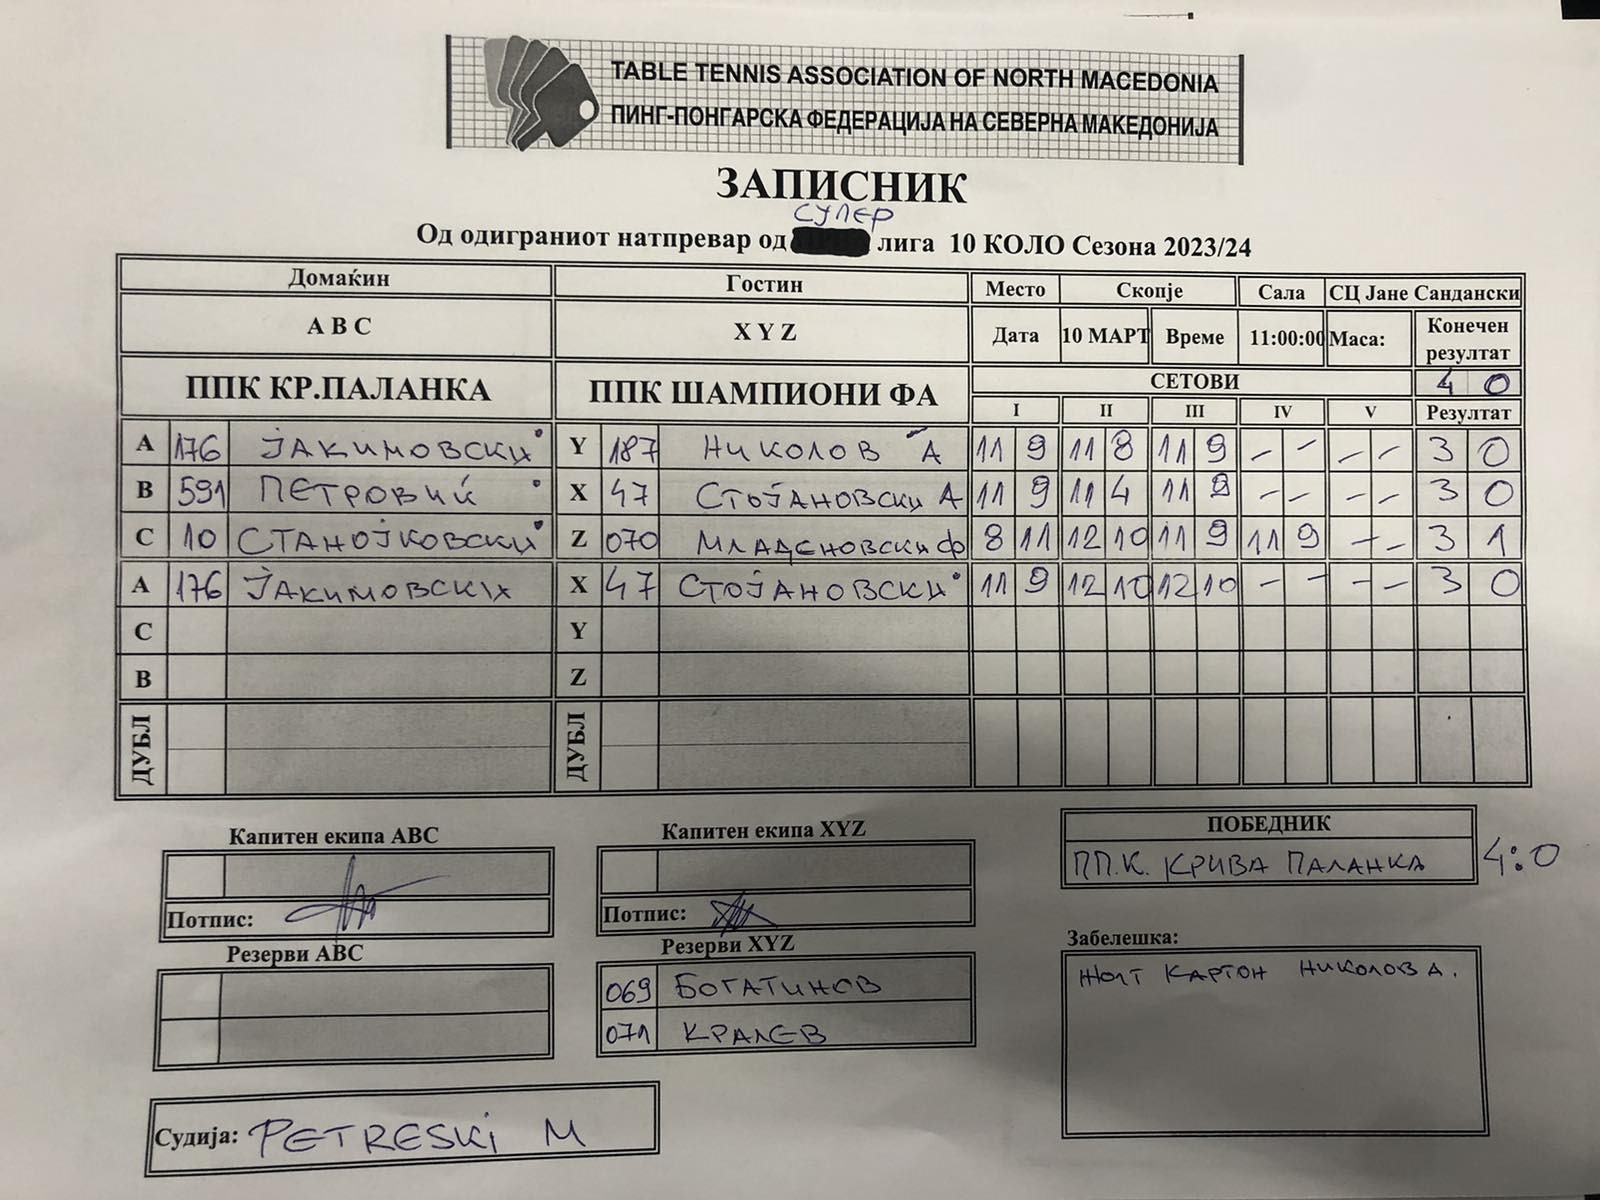 TABLE TENNIS ASSOCIATION OF NORTH MACEDONIA
ПИНГ-ПОНГАРСКА ФЕДЕРАЦИЈА НА СЕВЕРНА МАКЕДОНИЈА
ЗАПИСНИК
СУПЕР
Од одиграниот натпревар од лига 10 КОЛО Сезона 2023/24
Домаќин Гостин Место Скопје Сала СЦ Јане Сандански
A B C X Y Z Дата 10 МАРТ Време 11:00:00 Маса: Конечен резултат
ППК КР.ПАЛАНКА ППК ШАМПИОНИ ФА СЕТОВИ 4 0
I II III IV V Резултат
A 176 ЈАКИМОВСКИ Y 187 НИКОЛОВ А 11 9 11 8 11 9 - - - - 3 0
B 591 ПЕТРОВИЌ X 47 СТОЈАНОВСКИ А 11 9 11 4 11 9 - - - - 3 0
C 10 СТАНОЈКОВСКИ Z 070 МЛАДЕНОВСКИ Ф 8 11 12 10 11 9 11 9 - - 3 1
A 176 ЈАКИМОВСКИ X 47 СТОЈАНОВСКИ 11 9 12 10 12 10 - - - - 3 0
C Y
B Z
ДУБЛ ДУБЛ
Капитен екипа ABC Капитен екипа XYZ ПОБЕДНИК
ПП.К. КРИВА ПАЛАНКА 4:0
Потпис: Потпис:
Резерви ABC Резерви XYZ Забелешка:
069 БОГАТИНОВ
071 КРАЛЕВ
ЖОЛТ КАРТОН НИКОЛОВ А.
Судија: PETRESKI M